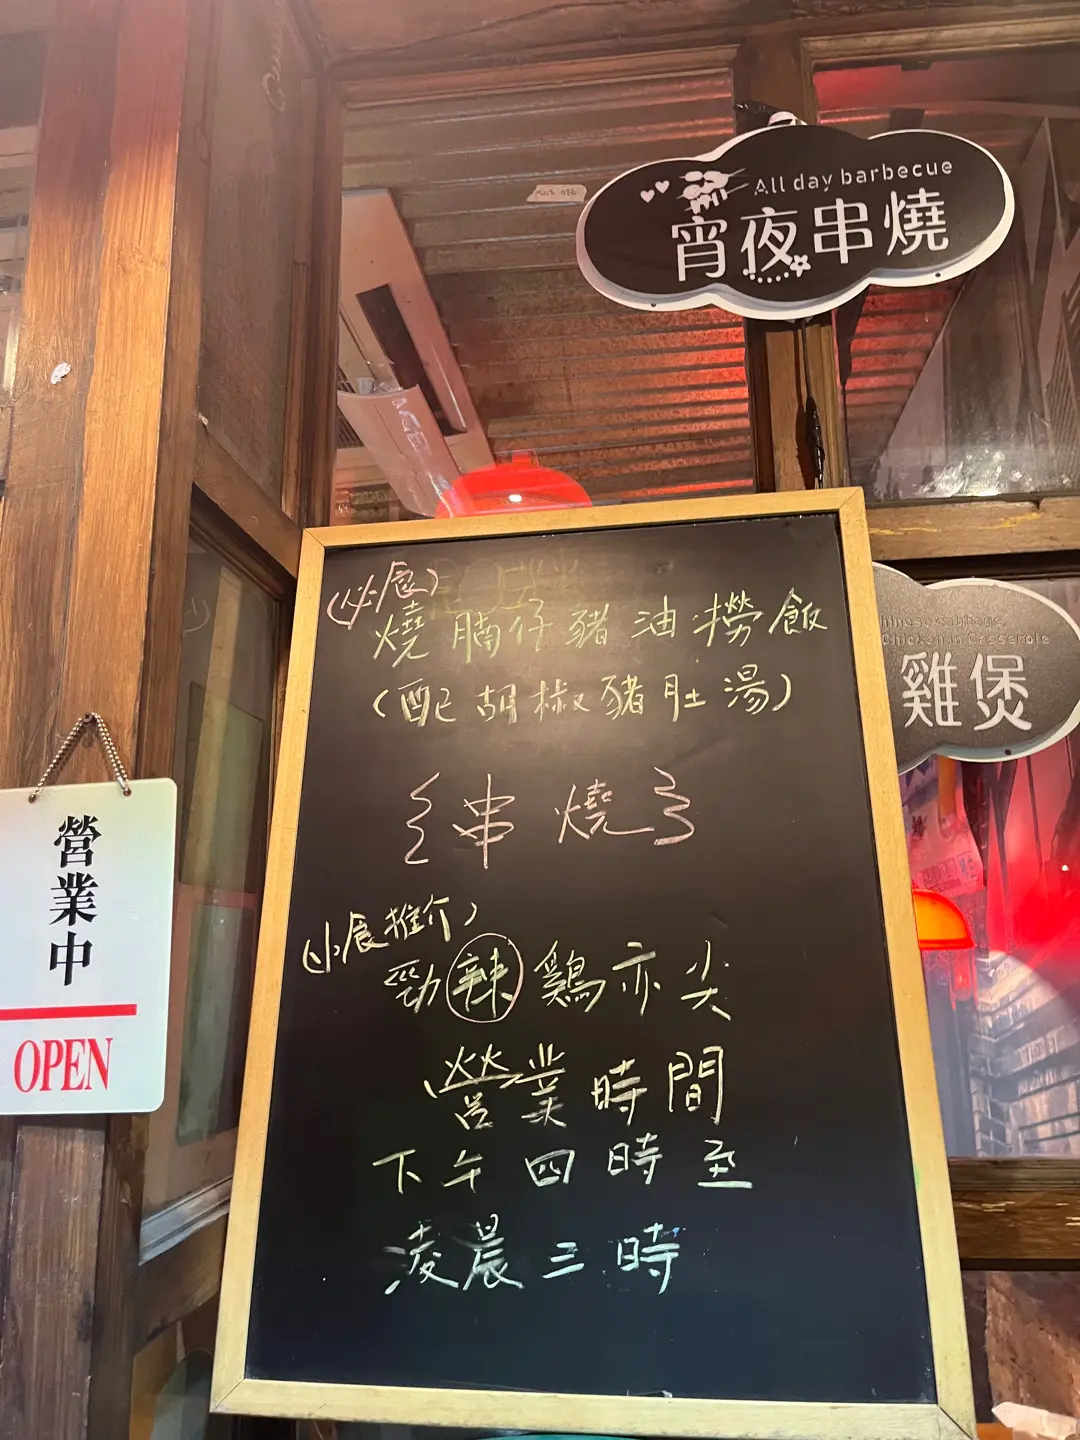 All day barbecue
宵夜串燒
(必食)
燒腩仔豬油撈飯
(配胡椒豬肚湯)
{串燒}
(小食推介)
勁辣鷄亦尖
營業時間
下午四時至
凌晨三時
Chinese cabbage,
Chicken in Casserole
雞煲
營業中
OPEN